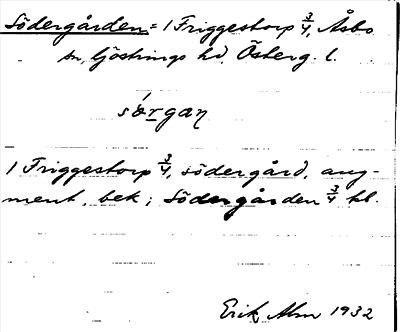 Södergården = 1 Friggestorp 3/4, Åsbo
sn, Göstrings hd Österg. l.
sö́rgan
1 Friggestorp 3/4, södergård, aug-
ment, bek; Södergården 3/4 hl.
Erik Alm 1932